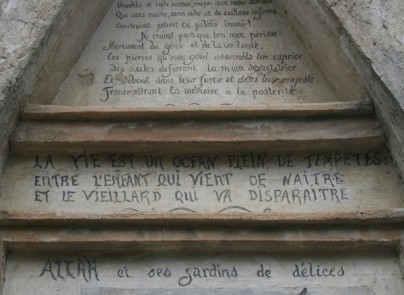 Humble et
Qui sans autre aide et de cailloux informes,
Construisit patient ce palais
Ne crains pas que ton nom périsse:
Monument du génie et de la volonté,
Ces pierres qu'avec goût assembla ton caprice,
Des siècles défieront la main dévastatrice
Et debout dans leur force et dans leur majesté,
Transmettront ta mémoire à la postérité.
LA VIE EST UN OCEAN PLEIN DE TEMPETES:
ENTRE L'ENFANT QUI VIENT DE NAÎTRE
ET LE VIEILLARD QUI VA DISPARAÎTRE
ALLAH et ses jardins de délices